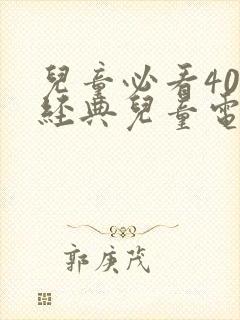 兒童必看40
經典兒童電
郭庚茂